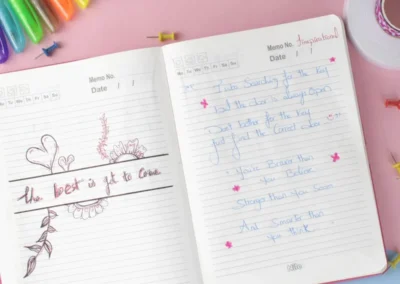 Memo No.
Mo Tu We Th Fr Sa Su
Date / /
the best is yet to come
Memo No. Inspirational
Mo Tu We Th Fr Sa Su
Date / /
Searching for the key
but the door is always Open
Don't bother for the key
just find the Correct door
You're Braver than
you Believe
Stronger than you Seem
And Smarter than
you think